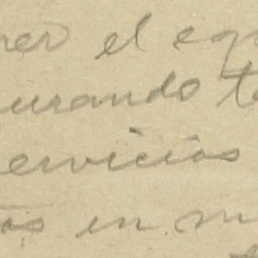 ner el equ
urando t
ervicios
as en m